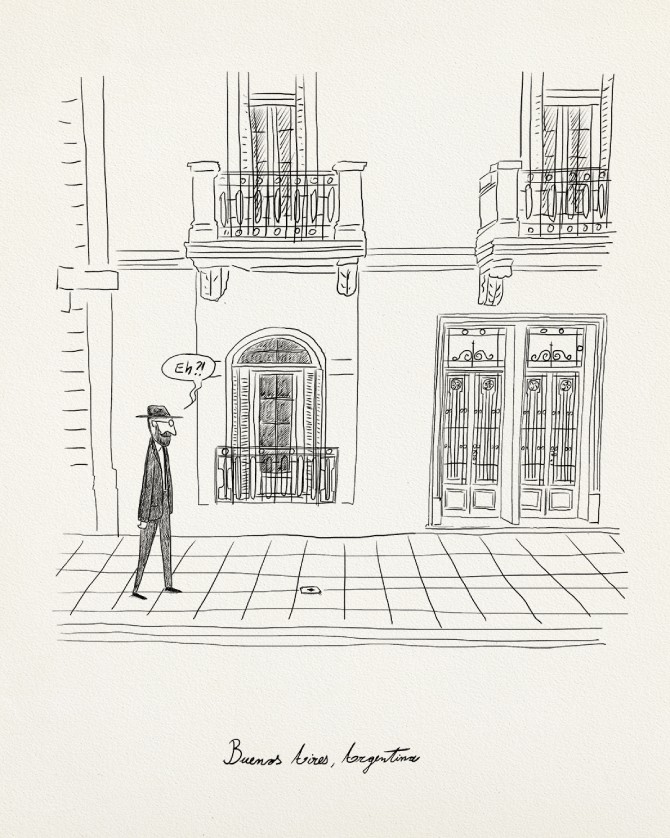 Eh?!
Buenos Aires, Argentina